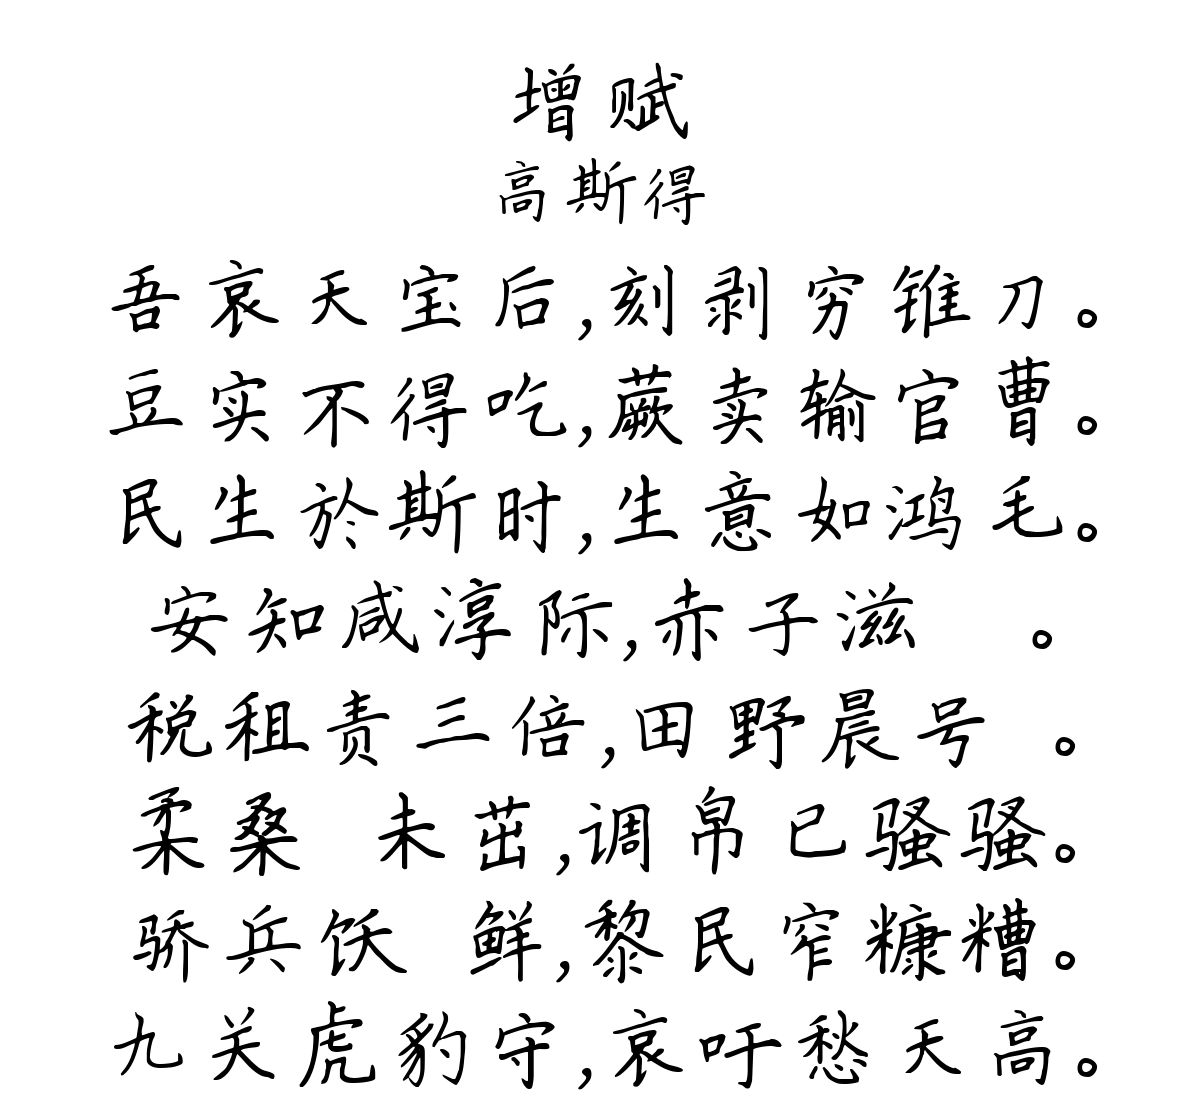 增赋
高斯得
吾哀天宝后,刻剥穷锥刀。
豆实不得吃,蕨卖输官曹。
民生於斯时,生意如鸿毛。
安知咸淳际,赤子滋 。
税租责三倍,田野晨号 。
柔桑 未茁,调帛已骚骚。
骄兵饫 鲜,黎民窄糠糟。
九关虎豹守,哀吁愁天高。